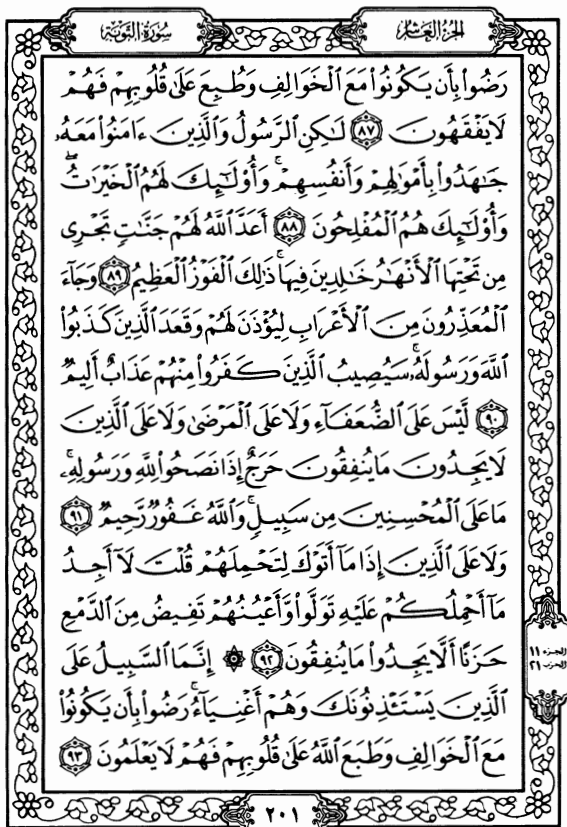 الجزء العاشر
سورة التوبة
رَضُوا۟ بِأَن يَكُونُوا۟ مَعَ ٱلْخَوَالِفِ وَطُبِعَ عَلَىٰ قُلُوبِهِمْ فَهُمْ
لَا يَفْقَهُونَ ٨٧ لَٰكِنِ ٱلرَّسُولُ وَٱلَّذِينَ ءَامَنُوا۟ مَعَهُۥ
جَٰهَدُوا۟ بِأَمْوَٰلِهِمْ وَأَنفُسِهِمْ ۚ وَأُو۟لَٰٓئِكَ لَهُمُ ٱلْخَيْرَٰتُ ۖ
وَأُو۟لَٰٓئِكَ هُمُ ٱلْمُفْلِحُونَ ٨٨ أَعَدَّ ٱللَّهُ لَهُمْ جَنَّٰتٍ تَجْرِى
مِن تَحْتِهَا ٱلْأَنْهَٰرُ خَٰلِدِينَ فِيهَا ۚ ذَٰلِكَ ٱلْفَوْزُ ٱلْعَظِيمُ ٨٩ وَجَآءَ
ٱلْمُعَذِّرُونَ مِنَ ٱلْأَعْرَابِ لِيُؤْذَنَ لَهُمْ وَقَعَدَ ٱلَّذِينَ كَذَبُوا۟
ٱللَّهَ وَرَسُولَهُۥ ۚ سَيُصِيبُ ٱلَّذِينَ كَفَرُوا۟ مِنْهُمْ عَذَابٌ أَلِيمٌ
٩٠ لَّيْسَ عَلَى ٱلضُّعَفَآءِ وَلَا عَلَى ٱلْمَرْضَىٰ وَلَا عَلَى ٱلَّذِينَ
لَا يَجِدُونَ مَا يُنفِقُونَ حَرَجٌ إِذَا نَصَحُوا۟ لِلَّهِ وَرَسُولِهِۦ ۚ
مَا عَلَى ٱلْمُحْسِنِينَ مِن سَبِيلٍ ۚ وَٱللَّهُ غَفُورٌ رَّحِيمٌ ٩١
وَلَا عَلَى ٱلَّذِينَ إِذَا مَآ أَتَوْكَ لِتَحْمِلَهُمْ قُلْتَ لَآ أَجِدُ
مَآ أَحْمِلُكُمْ عَلَيْهِ تَوَلَّوا۟ وَّأَعْيُنُهُمْ تَفِيضُ مِنَ ٱلدَّمْعِ
حَزَنًا أَلَّا يَجِدُوا۟ مَا يُنفِقُونَ ٩٢ ۞ إِنَّمَا ٱلسَّبِيلُ عَلَى
ٱلَّذِينَ يَسْتَـْٔذِنُونَكَ وَهُمْ أَغْنِيَآءُ ۚ رَضُوا۟ بِأَن يَكُونُوا۟
مَعَ ٱلْخَوَالِفِ وَطَبَعَ ٱللَّهُ عَلَىٰ قُلُوبِهِمْ فَهُمْ لَا يَعْلَمُونَ ٩٣
الجزء ١١
الحزب ٢١
٢٠١